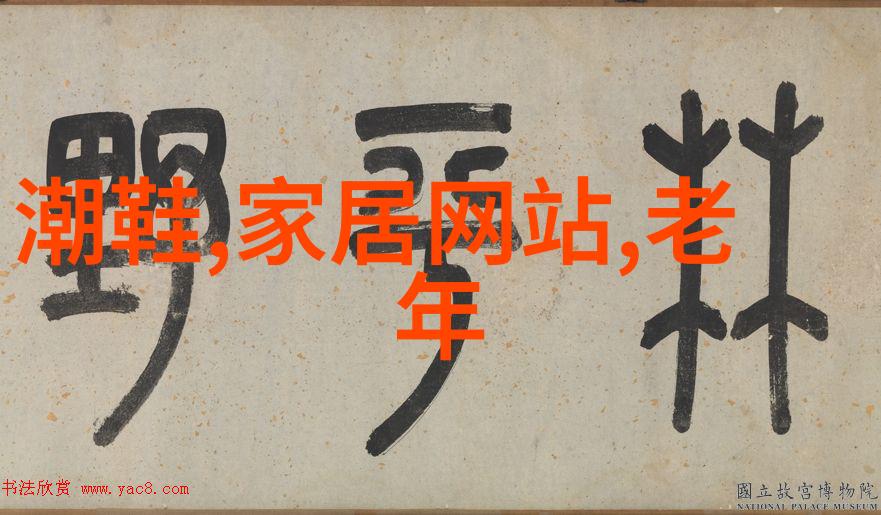 林 野
潮鞋,家居网站,老
年
书法欣赏 www.yac8.com
國立故宮博物院
NATIONAL PALACE MUSEUM